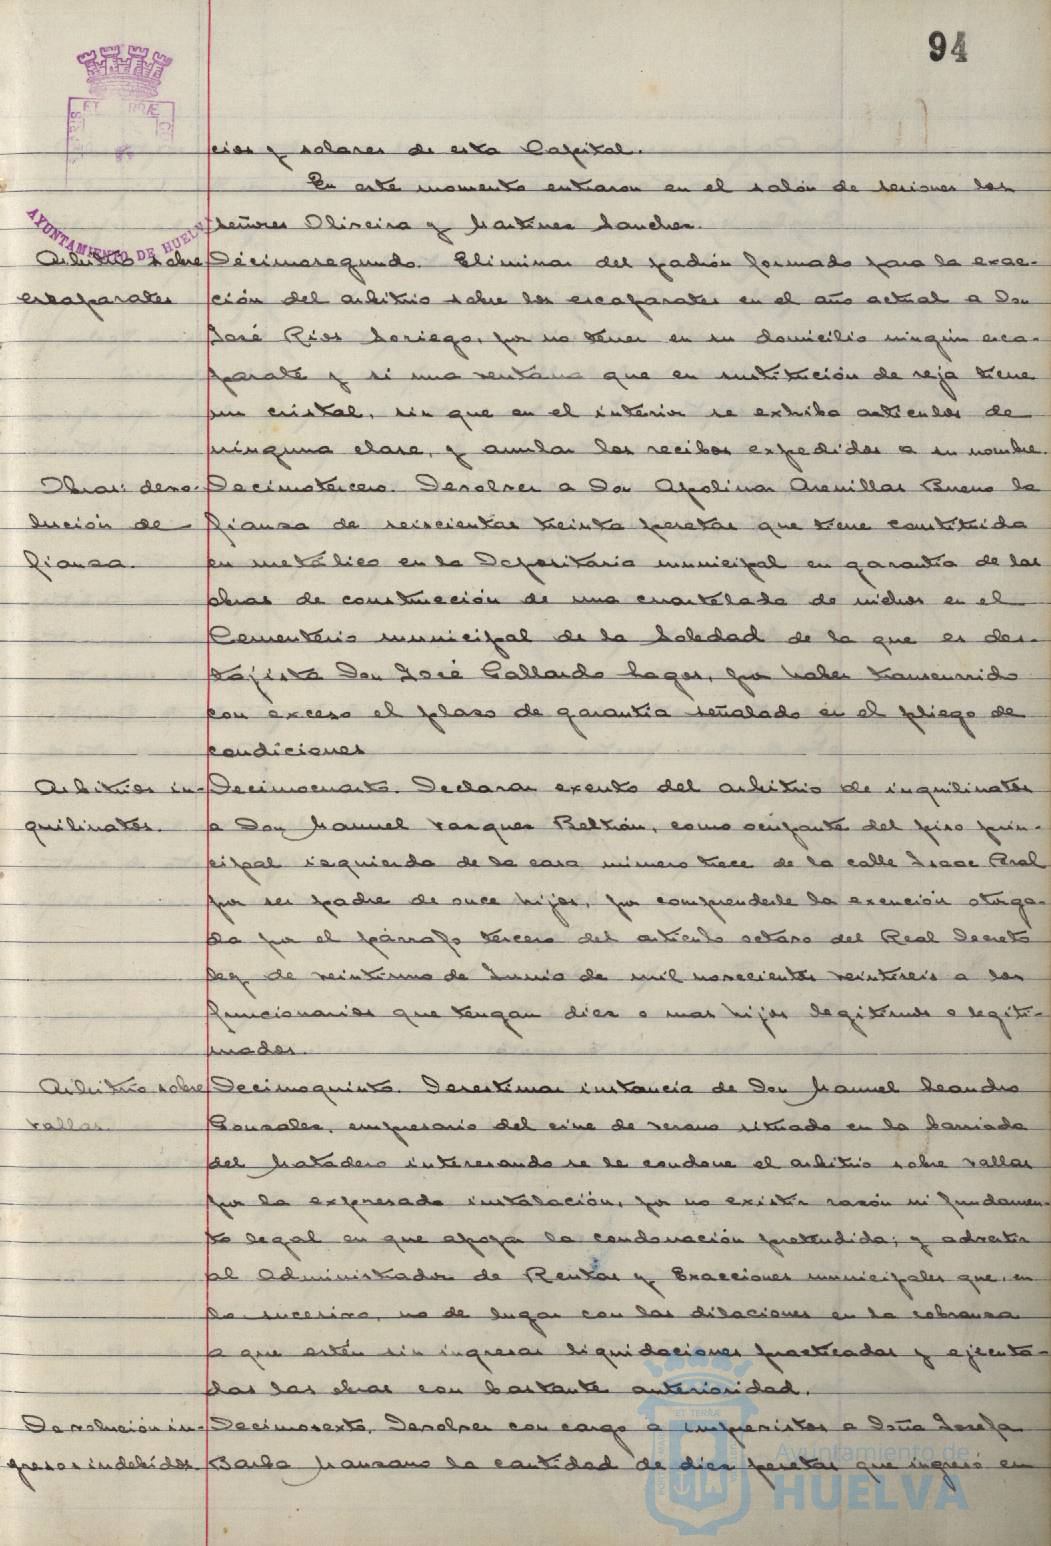 94
AYUNTAMIENTO DE HUELVA
cios y solares de esta Capital.
En este momento entraron en el salón de sesiones los
señores Oliveira y Martinez Sanchez.
Arbitrio sobre
escaparates
Décimosegundo. Eliminar del padrón formado para la exac-
ción del arbitrio sobre los escaparates en el año actual a Don
José Rios Soriego, por no tener en su domicilio ningún esca-
parate y si una ventana que en sustitución de reja tiene
un cristal, sin que en el interior se exhiba articulos de
ninguna clase, y anular los recibos expedidos a su nombre.
Obras: devo-
lución de
fianza.
Decimotercero. Devolver a Don Apolinar Arenillas Bueno la
fianza de seiscientas treinta pesetas que tiene constituida
en metálico en la Depositaria municipal en garantia de las
obras de construcción de una cuartelada de nichos en el
Cementerio municipal de la Soledad de la que es des-
tajista Don José Gallardo Lagos, por haber transcurrido
con exceso el plazo de garantia señalado en el pliego de
condiciones
Arbitrios in-
quilinatos.
Decimocuarto. Declarar exento del arbitrio de inquilinatos
a Don Manuel Vazquez Beltrán, como ocupante del piso prin-
cipal izquierda de la casa número trece de la calle Isaac Peral
por ser padre de once hijos, por comprenderle la exención otorga-
da por el párrafo tercero del artículo octavo del Real Decreto
ley de veintiuno de Junio de mil novecientos veintiseis a los
funcionarios que tengan diez o mas hijos legitimos o legiti-
mados.
Arbitrio sobre
vallas.
Decimoquinto. Desestimar instancia de Don Manuel Leandro
Gonzalez, empresario del cine de verano situado en la barriada
del Matadero interesando se le condone el arbitrio sobre vallas
por la expresada instalación, por no existir razón ni fundamen-
to legal en que apoyar la condonación pretendida; y advertir
al Administrador de Rentas y Exacciones municipales que, en
lo sucesivo, no de lugar con las dilaciones en la cobranza
a que estén sin ingresar liquidaciones practicadas y ejecuta-
das las obras con bastante anterioridad.
Devolución in-
gresos indebidos.
Decimosexto. Devolver con cargo a imprevistos a Doña Josefa
Barba Manzano la cantidad de diez pesetas que ingresó en
Ayuntamiento de
HUELVA